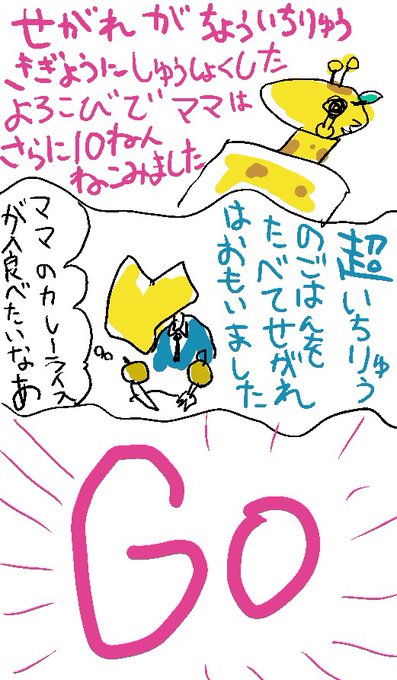 せがれ が ちょういちりゅう
きぎょうに しゅうしょくした
よろこびで ママは
さらに10ねん
ねこみました
超いちりゅう
のごはんを
たべてせがれ
はおもいました
ママのカレーライス
が食べたいなあ
Go